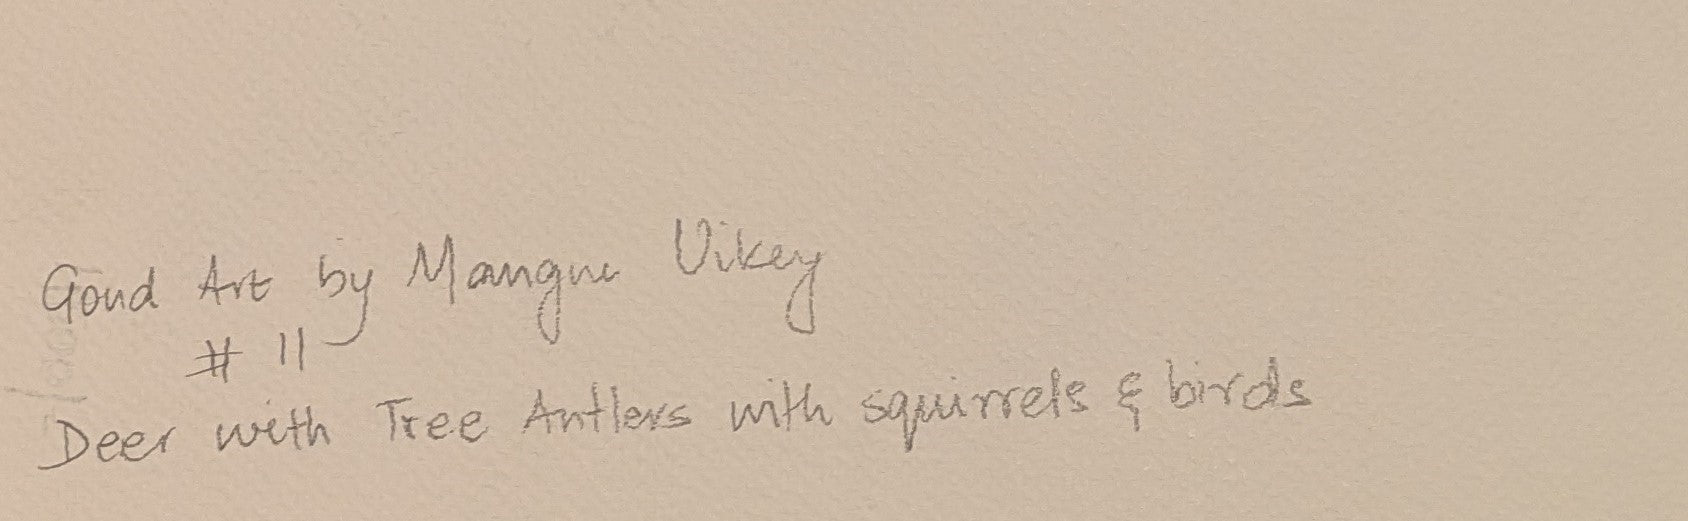 Gond Art by Mangru Uikey
# 11
Deer with Tree Antlers with squirrels & birds